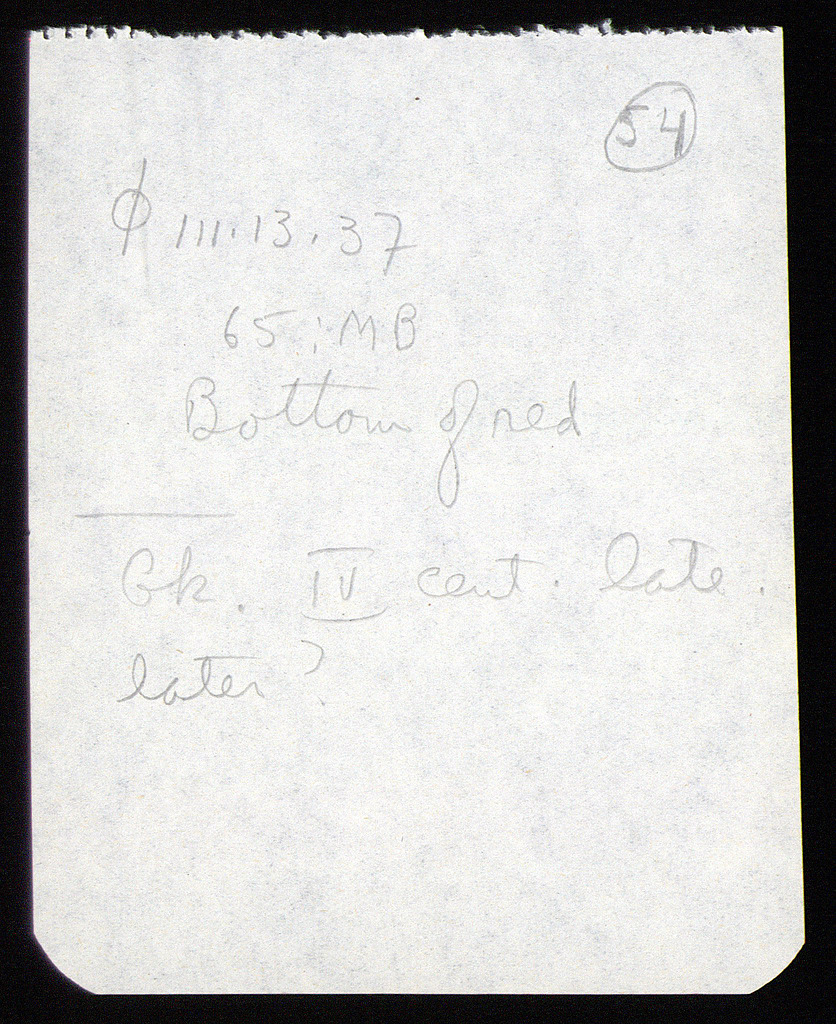 54
ϕ 111.13.37
65; MB
Bottom of red
Gk. IV cent. late.
later?